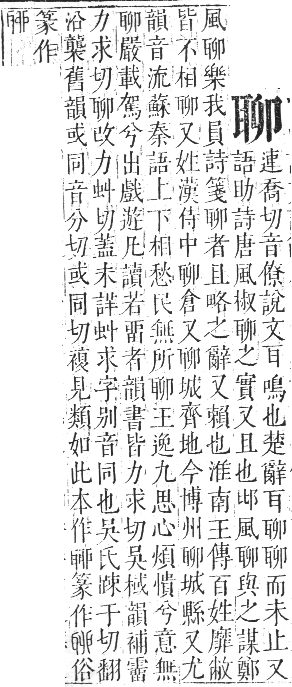 聊
連喬切音僚說文耳鳴也楚辭耳聊聊而未止又
語助詩唐風椒聊之實又且也邶風聊與之謀鄭
風聊樂我員詩箋聊者且略之辭又賴也淮南王傳百姓靡敝
皆不相聊又姓漢侍中聊倉又聊城齊地今博州聊城縣又尤
韻音流蘇秦語上下相愁民無所聊王逸九思心煩憒兮意無
聊嚴載駕兮出戲遊凡讀若畱者韻書皆力求切吳棫韻補霤
力求切聊改力虯切蓋未詳虯求字別音同也吳氏疎于切翻
沿襲舊韻或同音分切或同切複見類如此本作篆作俗
篆作